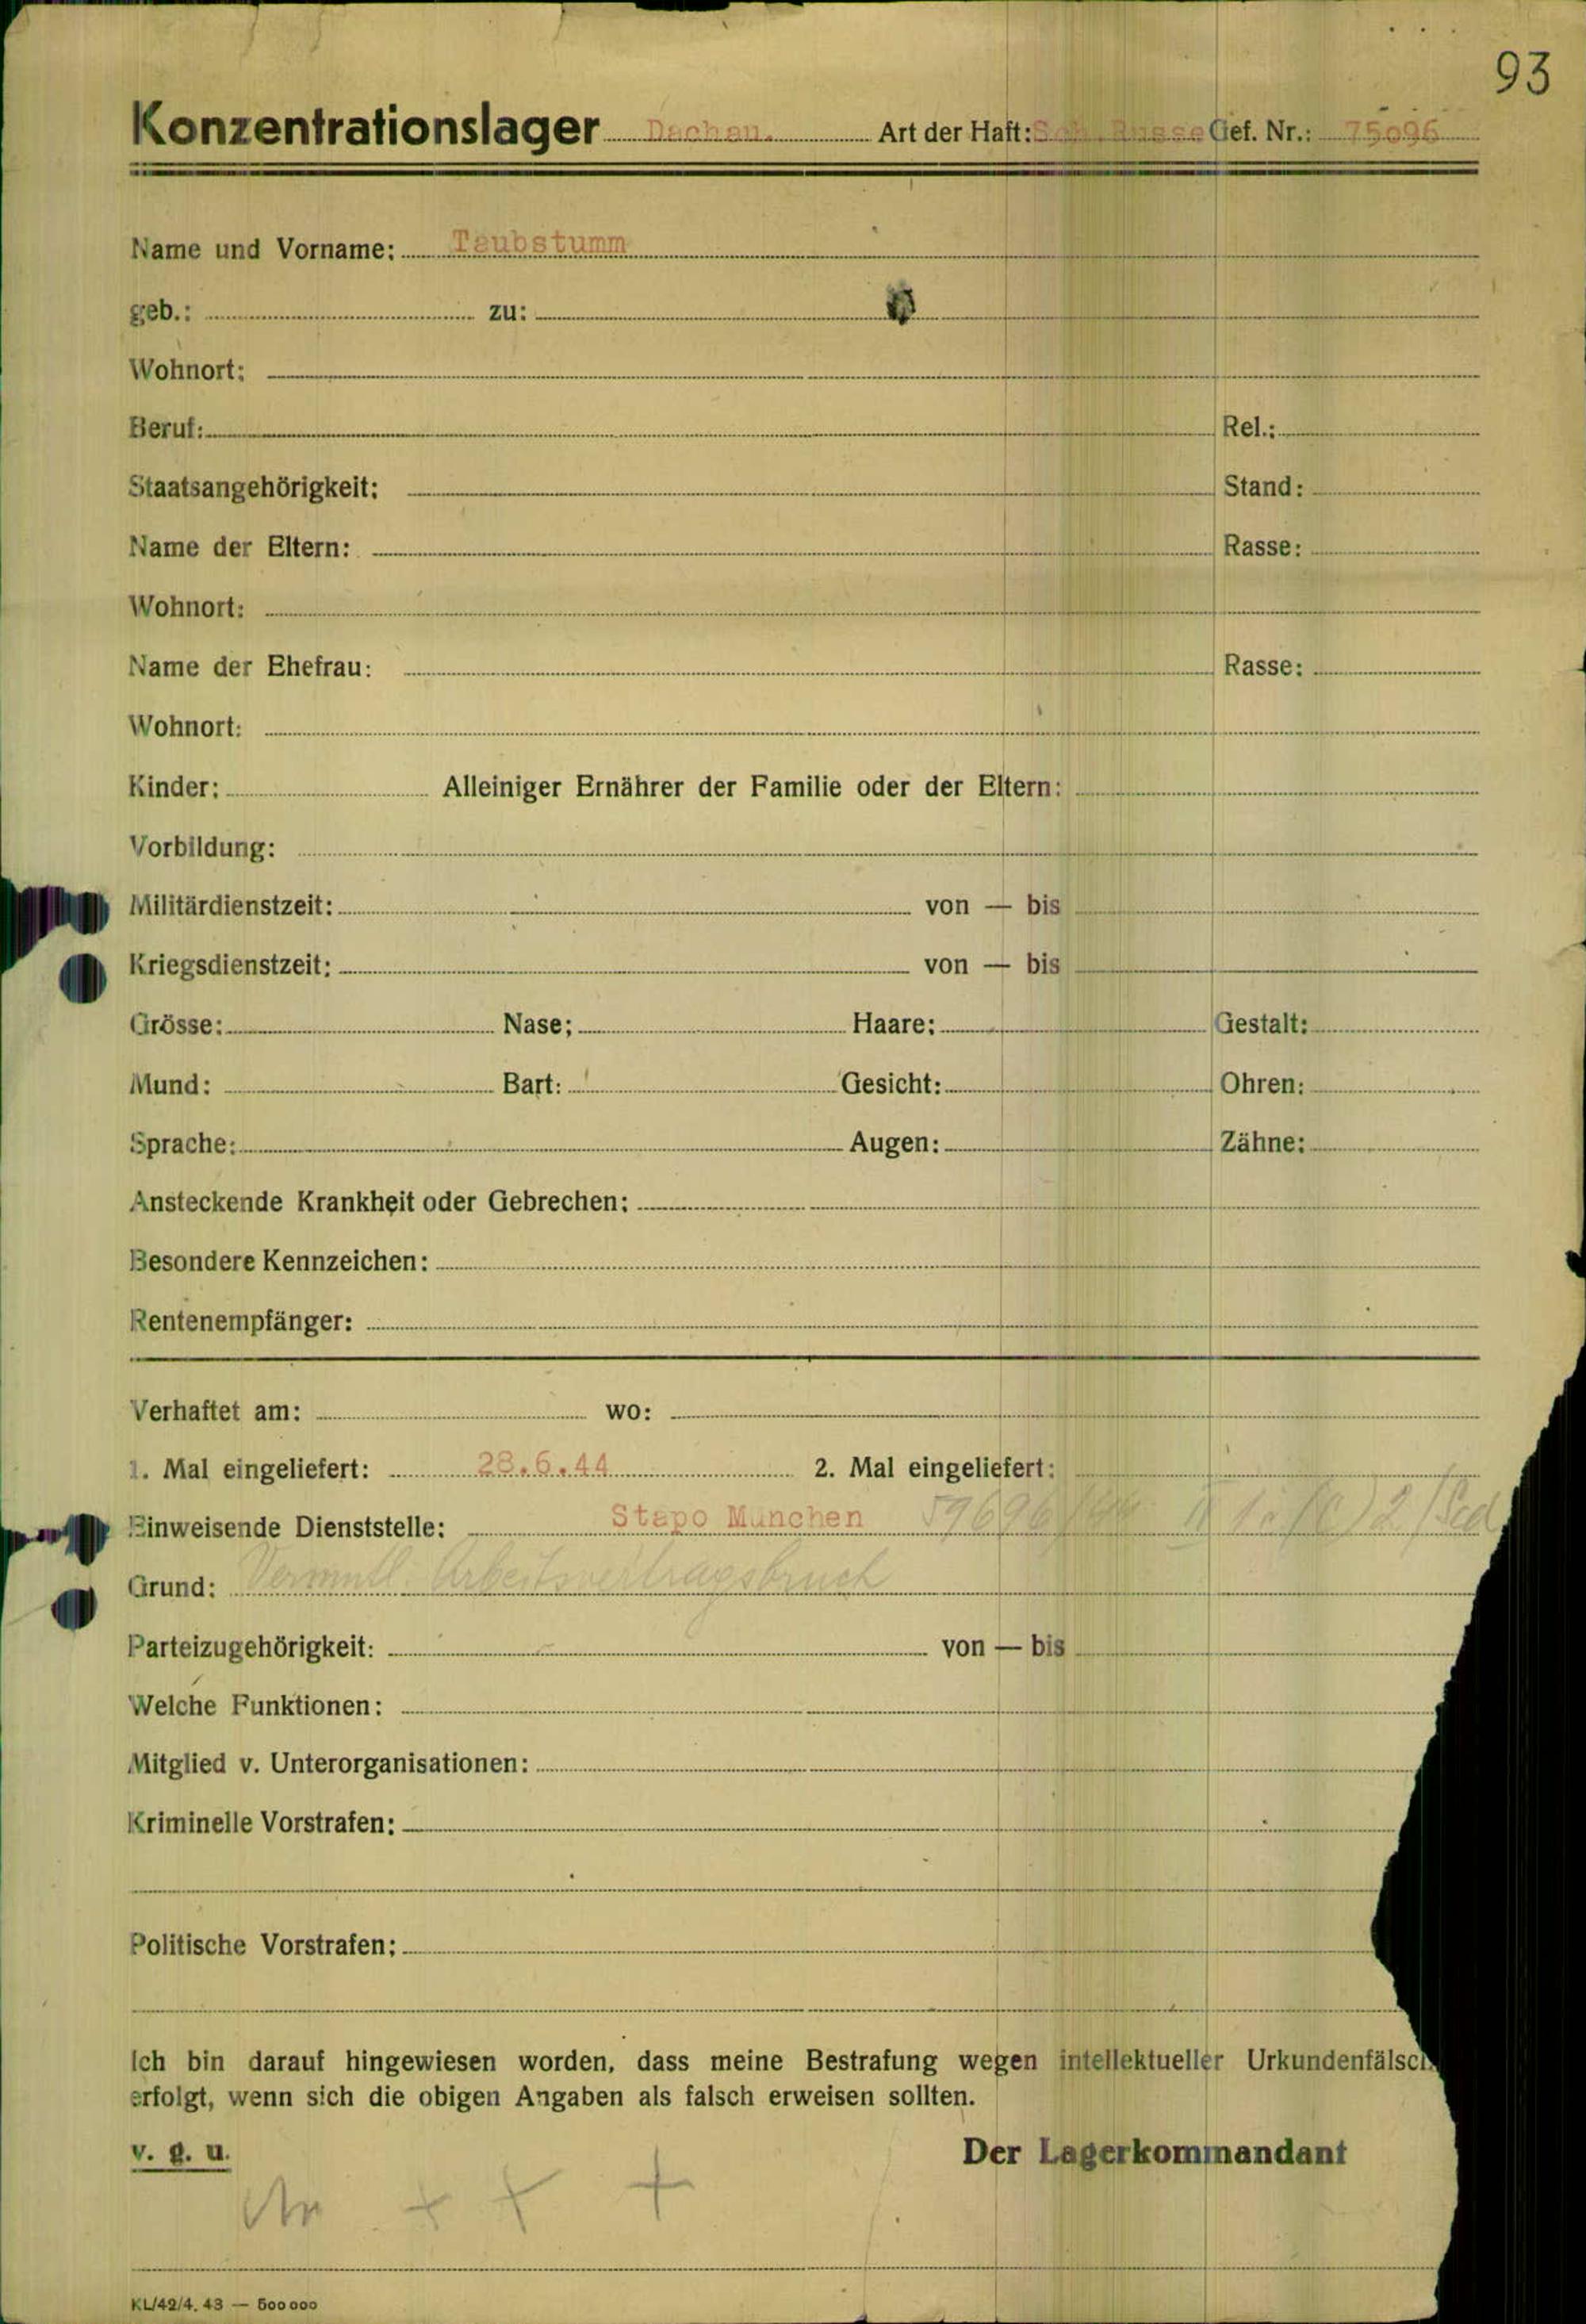 93
Konzentrationslager Dachau. Art der Haft: Sch. Russe Gef. Nr.: 75096
Name und Vorname: Taubstumm
geb.: zu:
Wohnort:
Beruf: Rel.:
Staatsangehörigkeit: Stand:
Name der Eltern: Rasse:
Wohnort:
Name der Ehefrau: Rasse:
Wohnort:
Kinder: Alleiniger Ernährer der Familie oder der Eltern:
Vorbildung:
Militärdienstzeit: von — bis
Kriegsdienstzeit: von — bis
Grösse: Nase: Haare: Gestalt:
Mund: Bart: Gesicht: Ohren:
Sprache: Augen: Zähne:
Ansteckende Krankheit oder Gebrechen:
Besondere Kennzeichen:
Rentenempfänger:
Verhaftet am: wo:
1. Mal eingeliefert: 28.6.44 2. Mal eingeliefert:
Einweisende Dienststelle: Stapo München
Grund: Vermutl. Arbeitsvertragsbruch
Parteizugehörigkeit: von — bis
Welche Funktionen:
Mitglied v. Unterorganisationen:
Kriminelle Vorstrafen:
Politische Vorstrafen:
Ich bin darauf hingewiesen worden, dass meine Bestrafung wegen intellektueller Urkundenfälsch
erfolgt, wenn sich die obigen Angaben als falsch erweisen sollten.
v. g. u. Der Lagerkommandant
+ + +
KL/42/4. 43 — 500 000